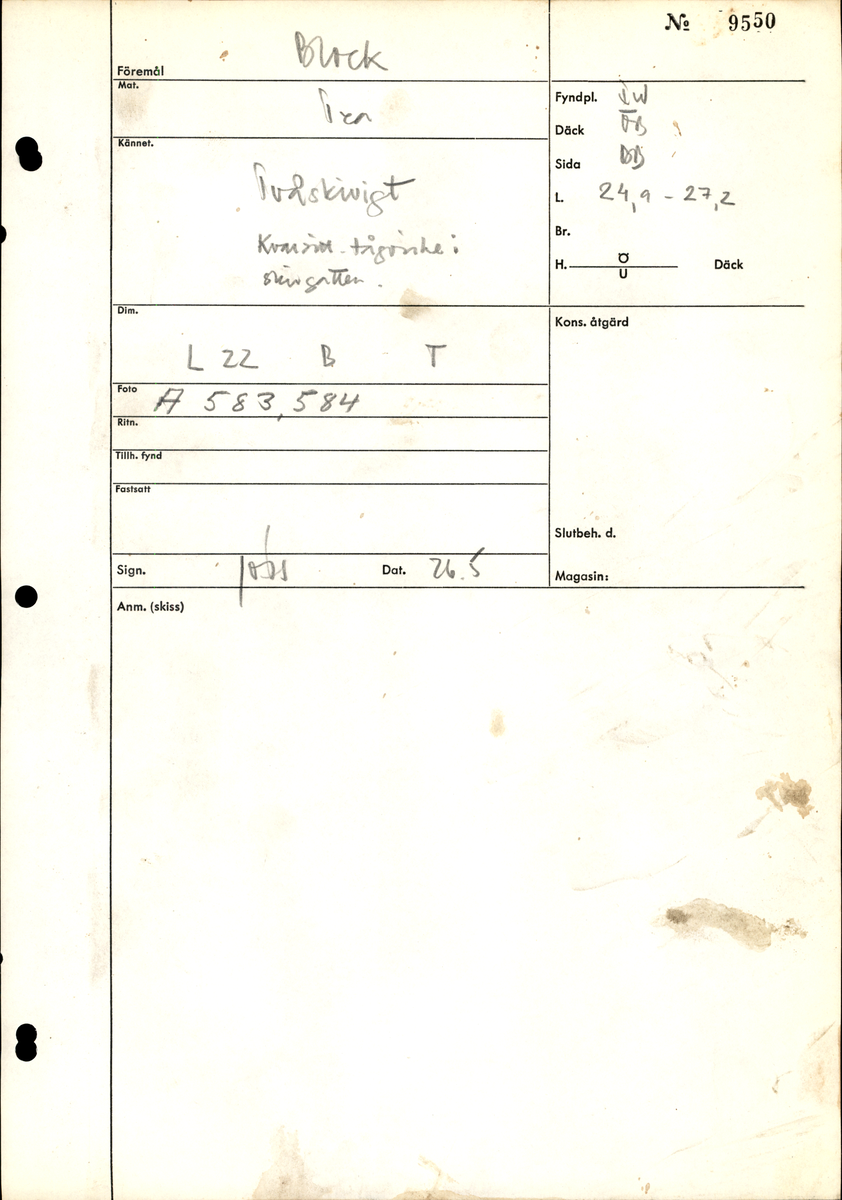 № 9550
Föremål Block
Mat. Trä
Fyndpl. IW
Däck ÖB
Sida BB
L. 24,9 - 27,2
Br.
H. Ö
U Däck
Kännet.
Tvåskivigt
i
Dim.
L 22 B T
Foto A 583, 584
Ritn.
Tillh. fynd
Fastsatt
Sign. Dat. 26.5
Kons. åtgärd
Slutbeh. d.
Magasin:
Anm. (skiss)